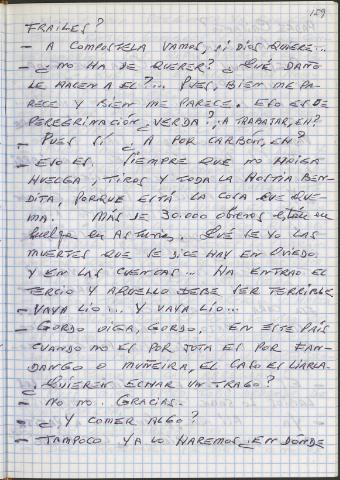 159
FRAILES?
- A COMPOSTELA VAMOS, SI DIOS QUIERE...
- ¿NO HA DE QUERER? ¿QUÉ DAÑO
LE HACEN A EL?... PUES, BIEN ME PA-
RECE Y BIEN ME PARECE. ESO ES DE
PEREGRINACIÓN ¿VERDA?, A TRABAJAR, EH?
- PUES SÍ ¿A POR CARBÓN, EH?
- ESO ES. SIEMPRE QUE NO HAIGA
HUELGA, TIROS Y TODA LA HOSTIA BEN-
DITA, PORQUE ESTÁ LA COSA QUE QUE-
MA. MÁS DE 30.000 obreros están en
huelga en Asturias. QUÉ SE YO LAS
MUERTES QUE SE DICE HAY EN OVIEDO
Y EN LAS CUENCAS... HA ENTRAO EL
TERCIO Y AQUELLO DEBE SER TERRIBLE
- VAYA LÍO... Y VAYA LÍO...
- GORDO OIGA, GORDO. EN ESTE PAÍS
CUANDO NO ES POR JOTA ES POR FAN-
DANGO O MUÑEIRA, EL CASO ES LIARLA.
¿QUIEREN ECHAR UN TRAGO?
- NO NO. GRACIAS.
- ¿Y COMER ALGO?
- TAMPOCO YA LO HAREMOS ¿EN DÓNDE